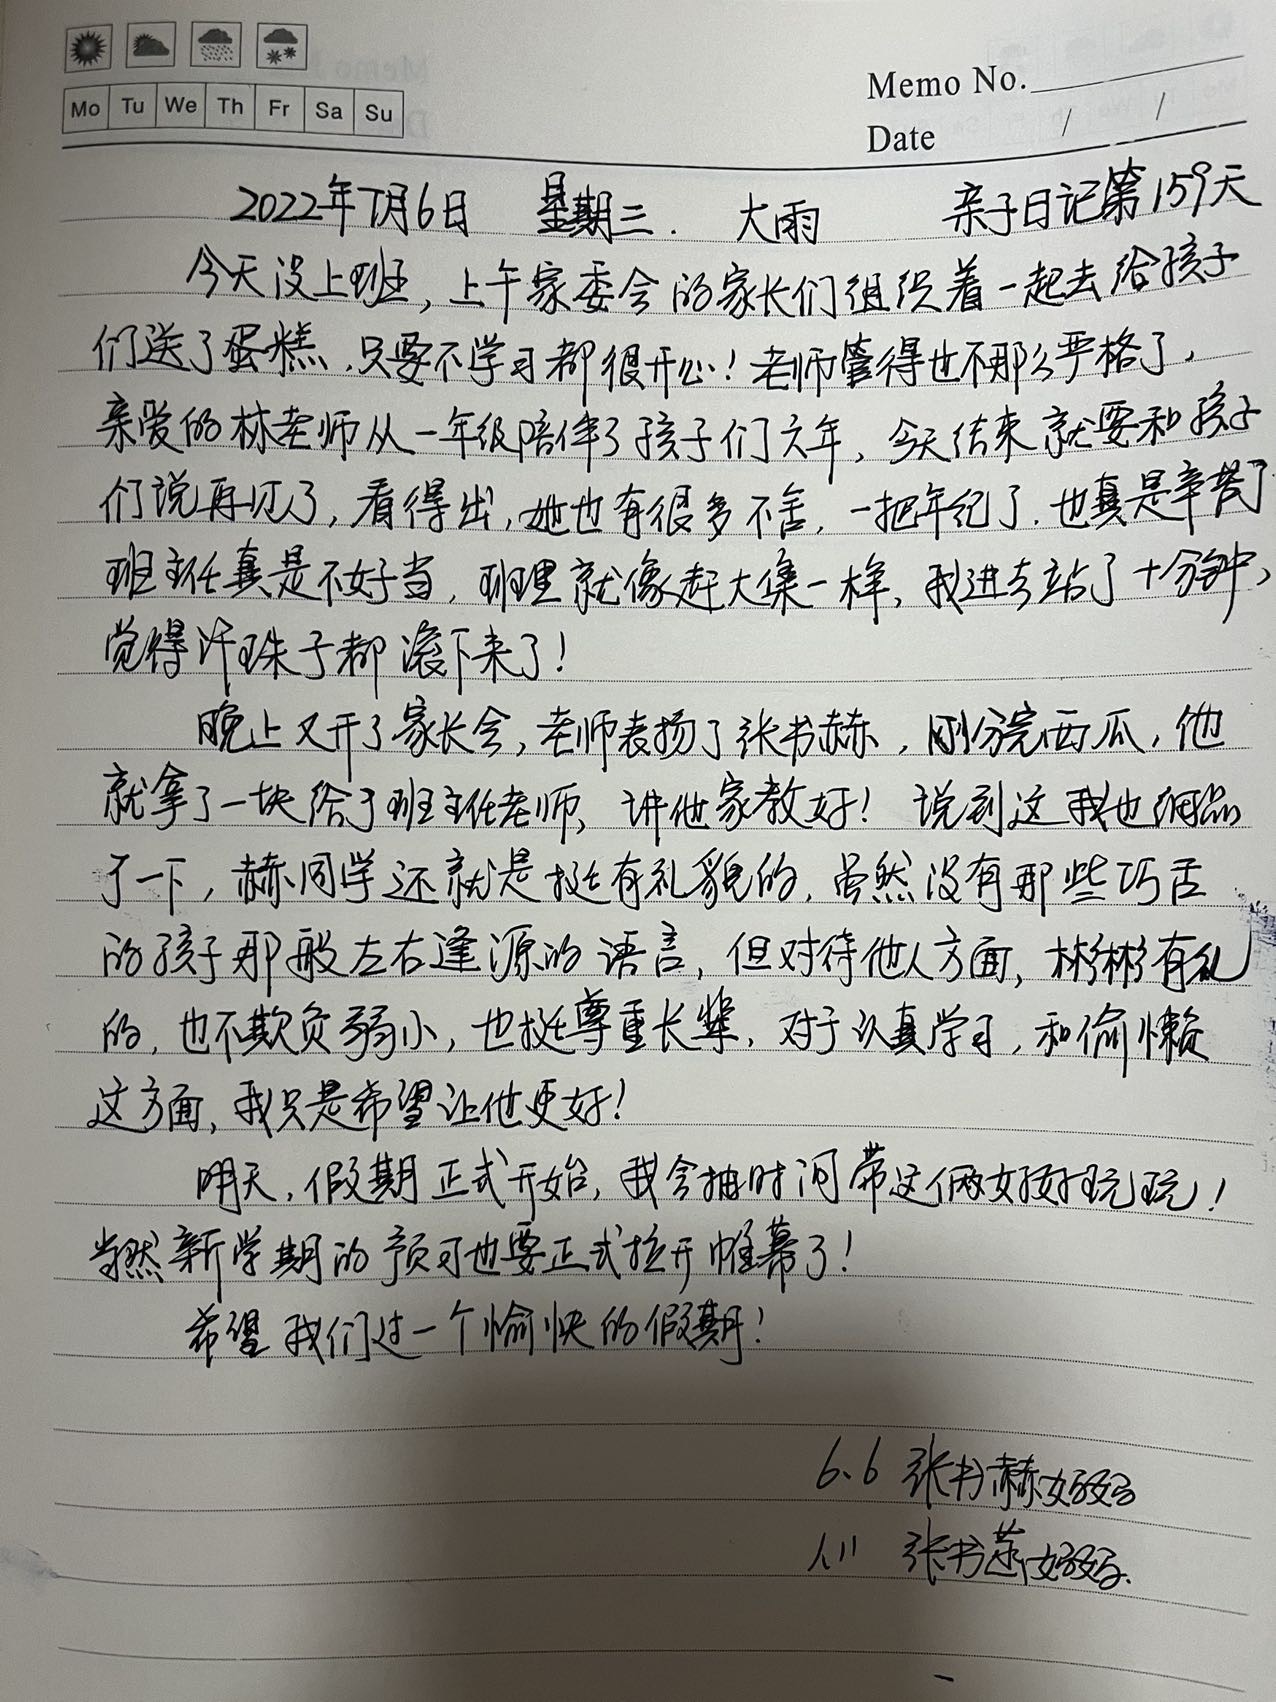 Mo Tu We Th Fr Sa Su
Memo No.
Date / /
2022年7月6日 星期三. 大雨 亲子日记第159天
今天没上班,上午家委会的家长们组织着一起去给孩子
们送了蛋糕.只要不学习都很开心!老师管得也不那么严格了,
亲爱的林老师从一年级陪伴了孩子们六年,今天结束就要和孩子
们说再见了,看得出,她也有很多不舍,一把年纪了.也真是辛苦了
班主任真是不好当,班里就像赶大集一样,我进去站了十分钟,
觉得汗珠子都滚下来了!
晚上又开了家长会,老师表扬了张书赫,刚分完西瓜,他
就拿了一块给了班主任老师,讲他家教好!说到这我也细品
了一下,赫同学还就是挺有礼貌的,虽然没有那些巧舌
的孩子那般左右逢源的语言,但对待他人方面,彬彬有礼
的,也不欺负弱小,也挺尊重长辈,对于认真学习,和偷懒
这方面,我只是希望让他更好!
明天,假期正式开始,我会抽时间带这俩好好玩玩!
当然新学期的预习也要正式拉开帷幕了!
希望我们过一个愉快的假期!
6.6 张书赫妈妈
1.11 张书